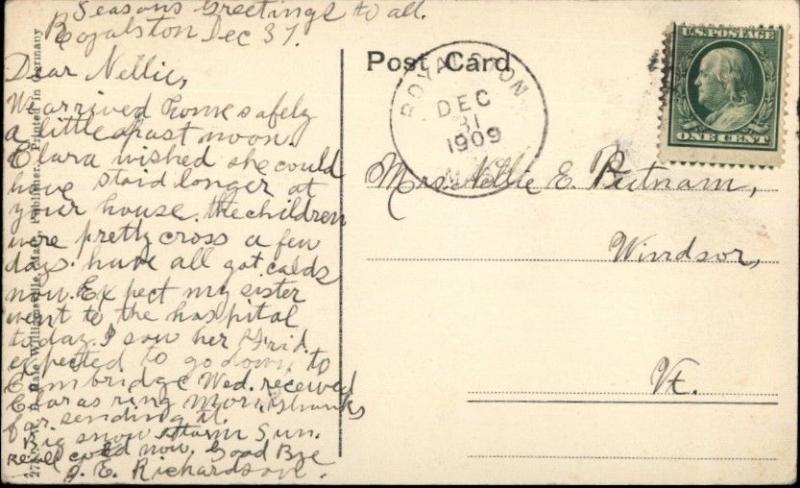 Seasons Greetings to all.
Royalston Dec 31.
Dear Nellie,
We arrived home safely
a little past noon.
Clara wished she could
have staid longer at
your house. the children
were pretty cross a few
days. have all got colds
now. Expect my sister
went to the hospital
today. I saw her Frid.
expected to go down to
Cambridge Wed. received
Claras ring Mon. thanks
for sending it.
Big snow storm Sun.
Real cold now. Good Bye
E. Richardson.
Post Card
ROYALSTON
DEC
31
1909
MASS
U.S. POSTAGE
ONE CENT
Mrs. Nellie E. Putnam,
Windsor,
Vt.
Dale Williamsville, Mass., Publisher. Printed in Germany